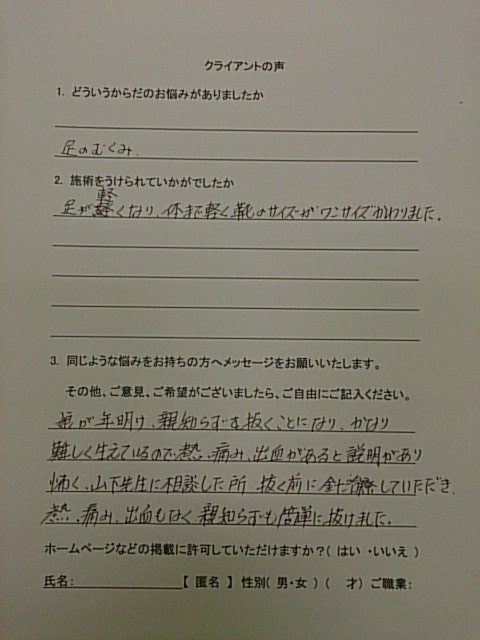 クライアントの声
1. どういうからだのお悩みがありましたか
足のむくみ.
2. 施術をうけられていかがでしたか
足が軽くなり、体まで軽く靴のサイズがワンサイズかわりました。
3. 同じような悩みをお持ちの方へメッセージをお願いいたします。
その他、ご意見、ご希望がございましたら、ご自由にご記入ください。
娘が年明け、親知らずを抜くことになり、かなり
難しく生えているので、熱、痛み、出血があると説明があり
怖く、山下先生に相談した所 抜く前に針治療していただき、
熱、痛み、出血もなく親知らずも簡単に抜けました。
ホームページなどの掲載に許可していただけますか?( はい ・いいえ )
氏名: 【 匿名 】 性別( 男・女 ) ( 才) ご職業: